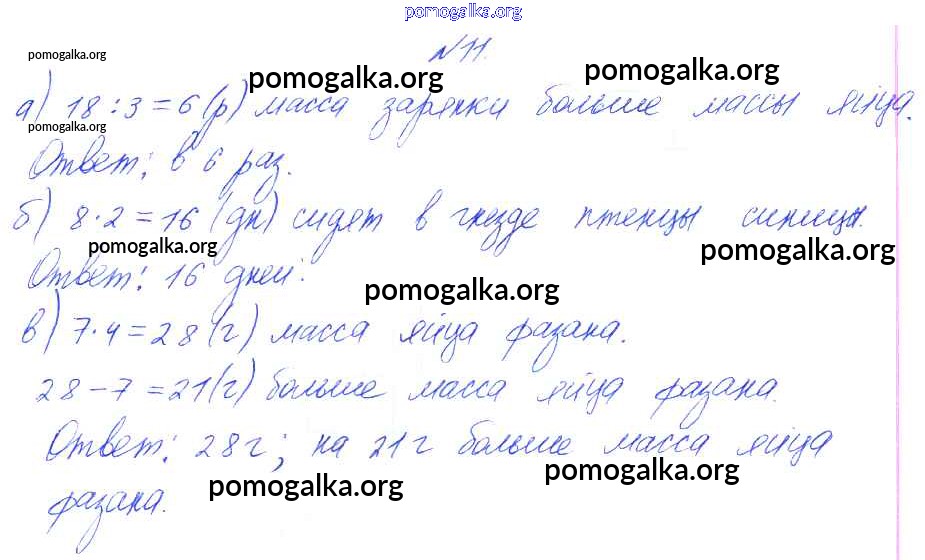 pomogalka.org
pomogalka.org
№11.
pomogalka.org
pomogalka.org
а) 18:3=6(р) масса зарянки больше массы яйца.
pomogalka.org
Ответ: в 6 раз.
б) 8·2=16 (дн) сидят в гнезде птенцы синицы.
pomogalka.org
pomogalka.org
Ответ: 16 дней.
pomogalka.org
в) 7·4=28(г) масса яйца фазана.
28-7=21(г) больше масса яйца фазана.
Ответ: 28г; на 21г больше масса яйца
pomogalka.org
pomogalka.org
фазана.